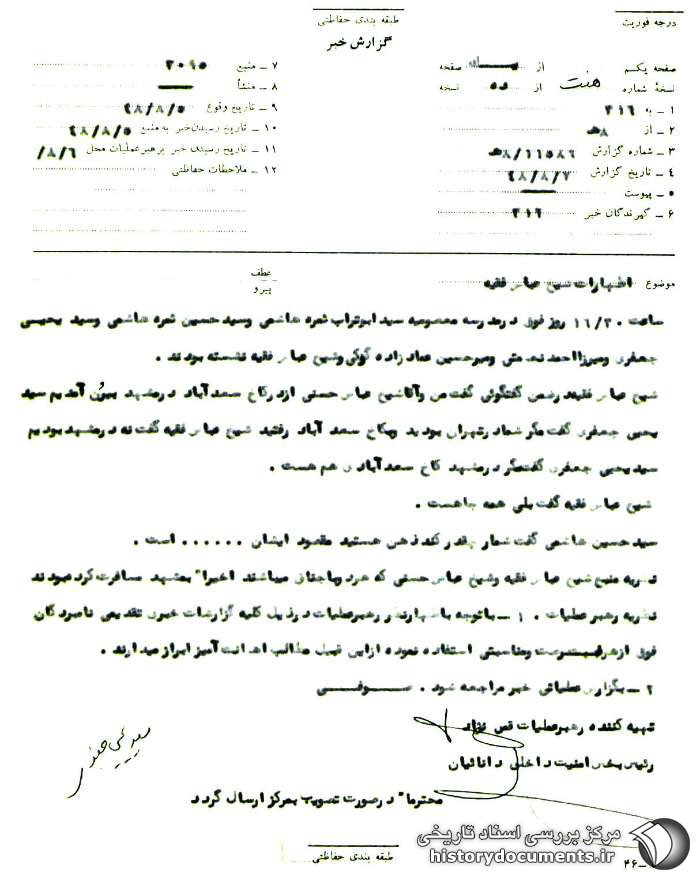 درجه فوریت
طبقه بندی حفاظتی
گزارش خبر
صفحه یکم از صفحه
نسخهٔ شماره هشت از ۵۵ نسخه
۱ ـ به ۳۱۶
۲ ـ از ۸ﻫ
۳ ـ شماره گزارش ۱۱۵۸۶/۸ﻫ
۴ ـ تاریخ گزارش ۴۸/۸/۷
۵ ـ پیوست
۶ ـ گیرندگان خبر ۳۱۶
۷ ـ منبع ۳۰۹۵
۸ ـ منشأ
۹ ـ تاریخ وقوع ۴۸/۸/۵
۱۰ ـ تاریخ رسیدن خبر به منبع ۴۸/۸/۵
۱۱ ـ تاریخ رسیدن خبر برهبر عملیات محل ۸/۶/
۱۲ ـ ملاحظات حفاظتی
موضوع اظهارات شیخ عباس فقیه
عطف
پیرو
ساعت ۱۶/۳۰ روز فوق در مدرسه معصومیه سید ابوتراب ثمره هاشمی وسید حسین ثمره هاشمی وسید یحیی
جعفری ومیرزااحمد ومیرحسین عماد زاده گوکی وشیخ عباس فقیه نشسته بودند .
شیخ عباس فقیه در ضمن گفتگوئی گفت من وآقاشیخ عباس حسنی از در کاخ سعد آباد در مشهد بیرون آمدیم سید
یحیی جعفری گفت مگر شما در تهران بودید وبکاخ سعد آباد رفتید شیخ عباس فقیه گفت نه در مشهد بودیم
سید یحیی جعفری گفت مگر در مشهد کاخ سعد آباد هم هست .
شیخ عباس فقیه گفت بلی همه جا هست .
سید حسین هاشمی گفت شما چقدر کند ذهن هستید مقصود ایشان ...... است .
نظریه منبع شیخ عباس فقیه وشیخ عباس حسنی که هردو باجناق میباشند اخیرا" بمشهد مسافرت کرده بودند
نظریه رهبر عملیات . ۱ ـ باتوجه باظهارنظر رهبر عملیات در ذیل کلیه گزارشات خبری تقدیمی نامبردگان
فوق از هر فرصت ومناسبتی استفاده نموده از این قبیل مطالب اهانت آمیز ابراز میدارند .
۲ ـ بگزارش عملیاتی خبر مراجعه شود . صوفی
تهیه کننده رهبر عملیات نژاد
رئیس بخش امنیت داخلی دانائیان
سید یحیی جعفری
محترما" در صورت تصویب بمرکز ارسال گردد
طبقه بندی حفاظتی
۴۶ـ
مرکز بررسی اسناد تاریخی
historydocuments.ir